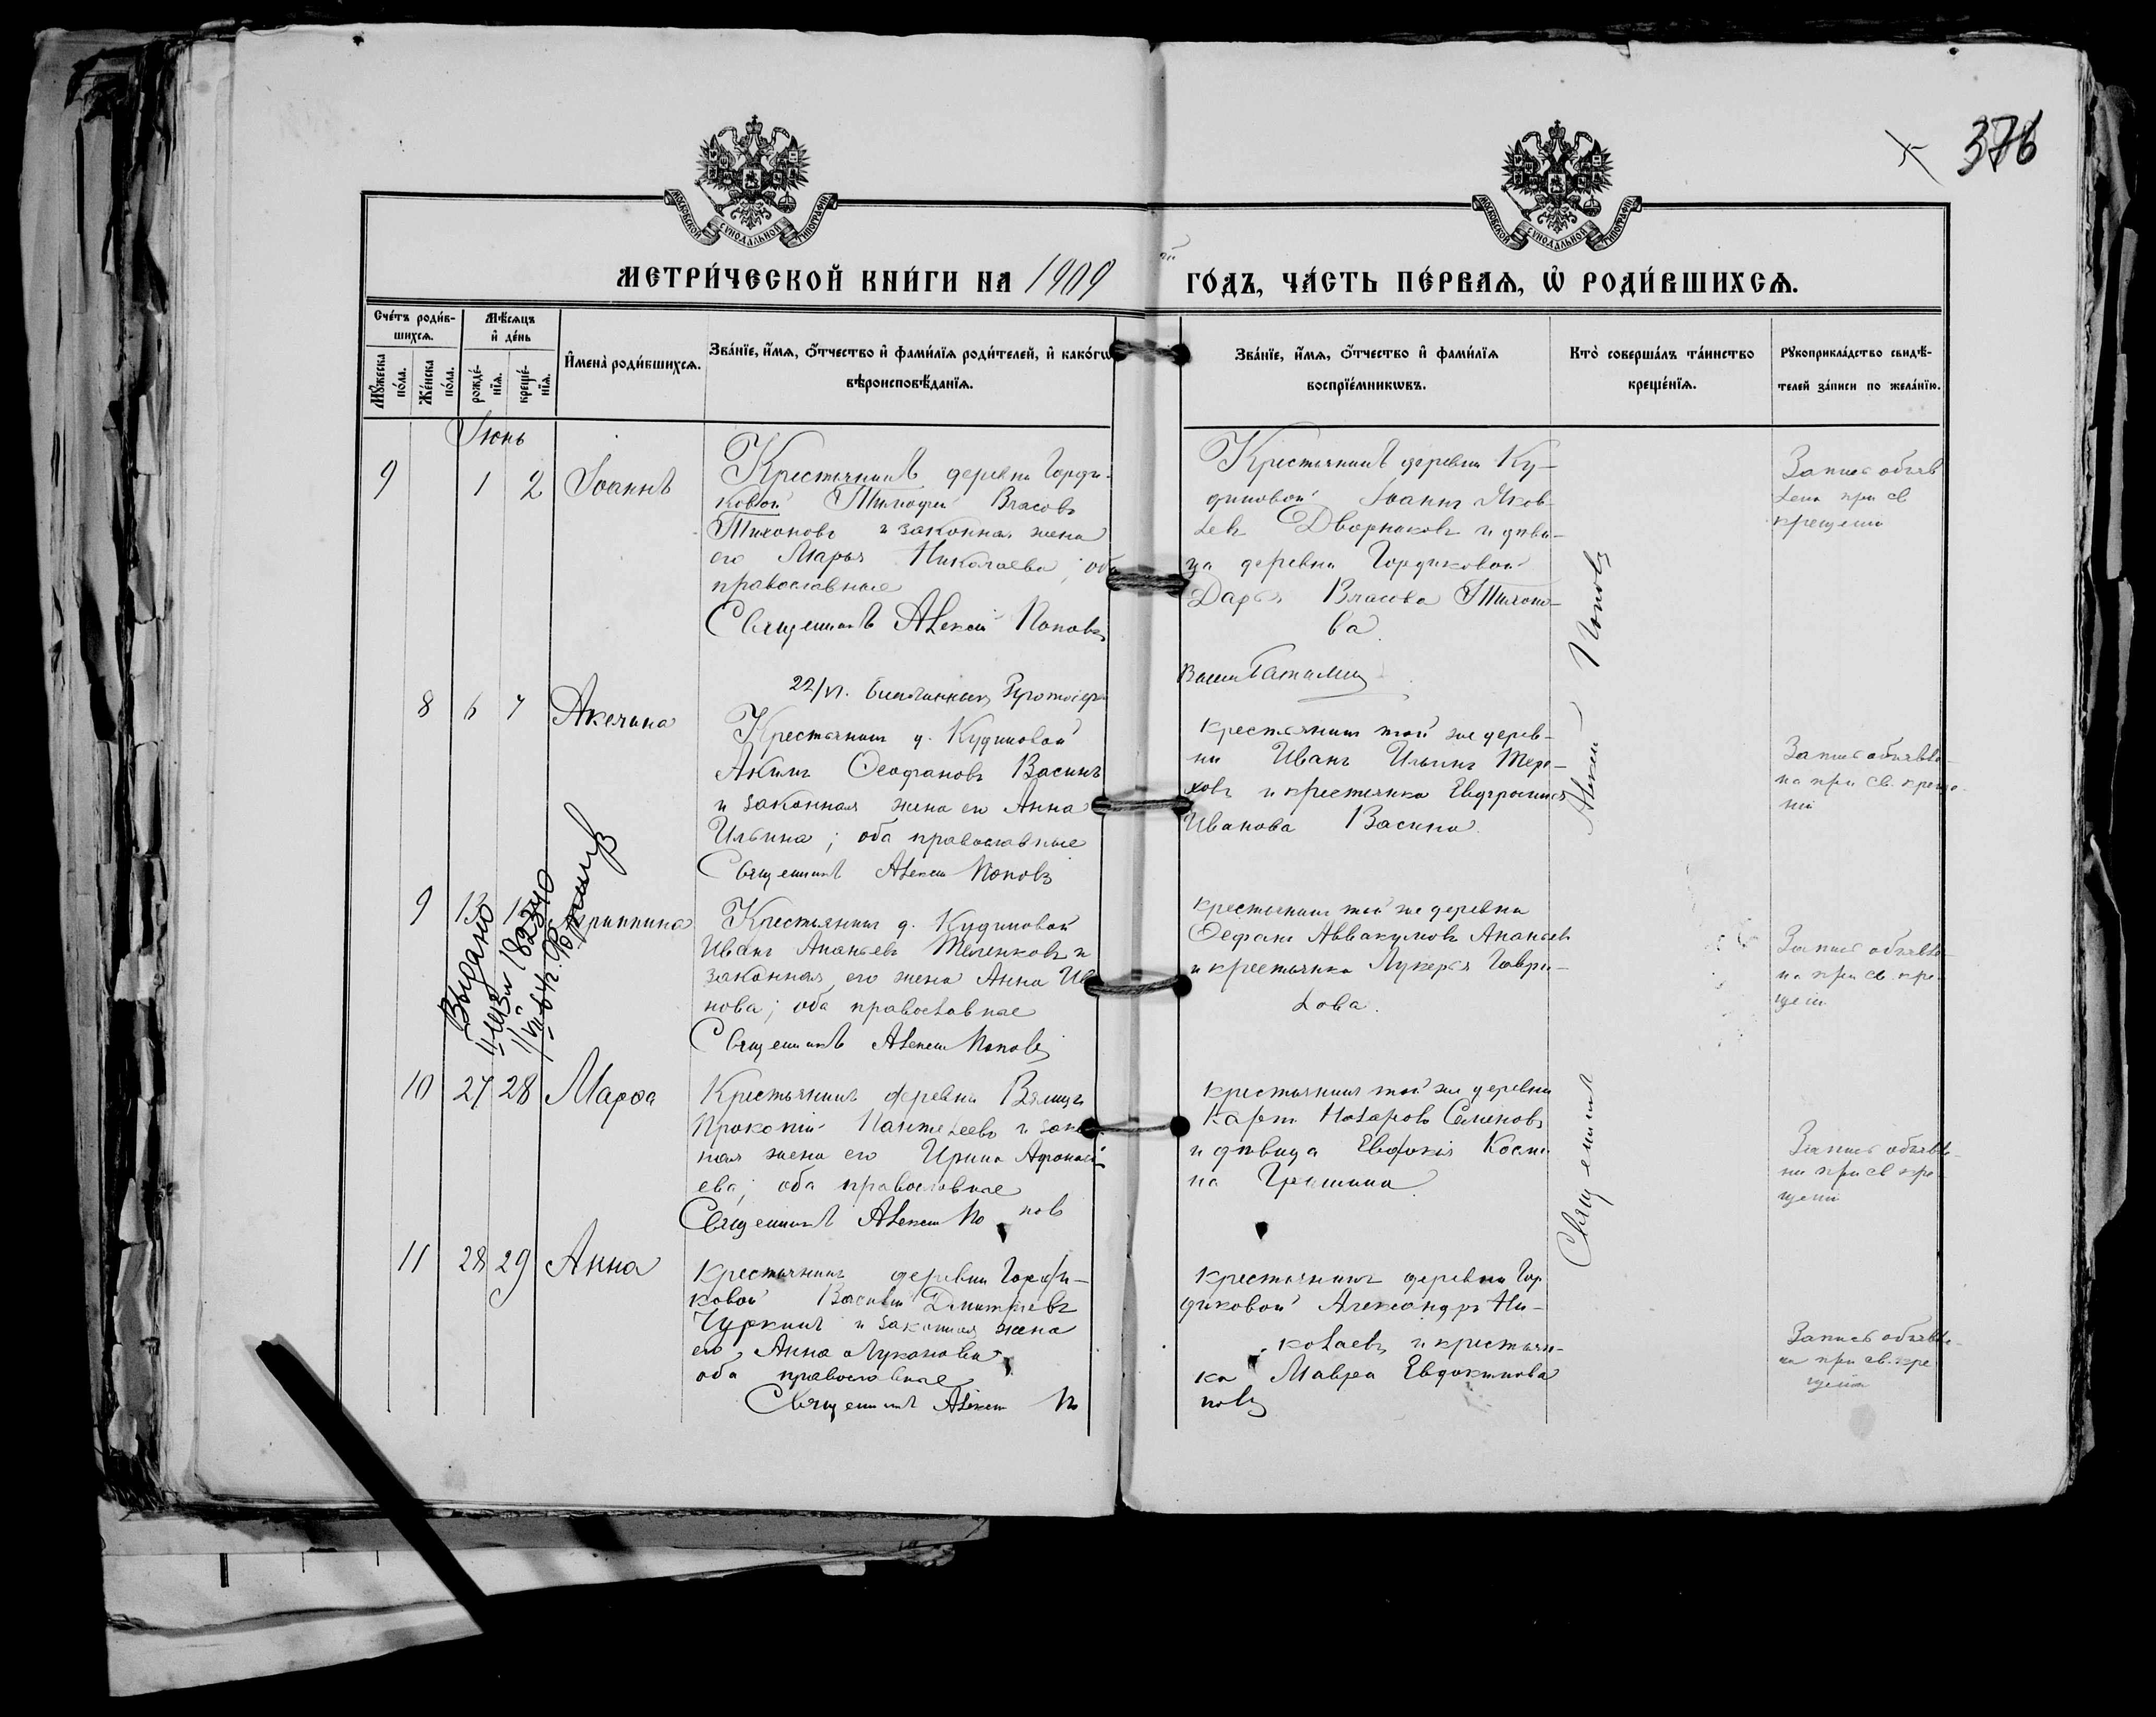 376
МОСКОВСКОЙ СУНОДАЛЬНОЙ ТИПОГРАФІИ
МОСКОВСКОЙ СУНОДАЛЬНОЙ ТИПОГРАФІИ
МЕТРИ́ЧЕСКОЙ КНИ́ГИ НА 1909 ГО́ДЪ, ЧА́СТЬ ПЕ́РВАѦ, Ѡ҆ РОДИ́ВШИХСѦ.
Сче́тъ роди́в-
шихсѧ.
Мꙋ́жеска по́ла.
Же́нска по́ла.
Мѣ́сѧцъ
и҆ де́нь
рожде́-
нїѧ.
креще́-
нїѧ.
И҆мена̀ роди́вшихсѧ.
Зва́нїе, и҆́мѧ, ѻ҆́тчество и҆ фами́лїѧ роди́телей, и҆ како́гѡ
вѣроисповѣ́данїѧ.
Зва́нїе, и҆́мѧ, ѻ҆́тчество и҆ фами́лїѧ
воспрїе́мникѡвъ.
Кто̀ соверша́лъ та́инство
креще́нїѧ.
Рꙋкоприкла́дство свидѣ́-
телей за́писи по жела́нїю.
Іюнь
9 1 2 Іоаннъ
Крестьянинъ деревни Горди-
ковой Тимофей Власовъ
Тихоновъ и законная жена
его Марья Николаева; оба
православные
Священникъ Алексей Поповъ
Крестьянинъ деревни Ку-
диновой Іоаннъ Яков-
левъ Дворниковъ и дѣви-
ца деревни Гордиковой
Дарья Власова Тихоно-
ва.
Запись объяв
лена при св
крещеніи
22/VI.
8 6 7 Акелина
Крестьянинъ д. Кудиновой
Акимъ Ѳеофановъ Васинъ
и законная жена его Анна
Ильина; оба православные
Священникъ Алексей Поповъ
крестьянинъ той же дерев-
ни Иванъ Ильинъ Тере-
ховъ и крестьянка Евфросинія
Иванова Васина.
Запись объявле-
на при св. креще-
ніи
9 13
Выдано
182340
Крестьянинъ д. Кудиновой
Иванъ Ананьевъ Теленковъ и
законная его жена Анна Ива
нова; оба православные
Священникъ Алексей Поповъ
крестьянинъ той же деревни
Ѳеофанъ Аввакумовъ Ананьевъ
и крестьянка Лукерья Гаври-
лова.
Запись объявле-
на при св. кре-
щеніи
10 27 28 Марѳа
Крестьянинъ деревни
Прокопій Пантелеевъ и закон
ная жена его Ирина Афонась
ева; оба православные
Священникъ Алексей Поповъ
крестьянинъ той же деревни
Карпъ Назаровъ Семеновъ
и дѣвица Евдокія Косми
на Гришина
Запись объявле-
на при св кре-
щеніи
11 28 29 Анна
крестьянинъ деревни Горди-
ковой Василій Дмитріевъ
Чуркинъ и законная жена
его Анна Луканова
оба православные
Священникъ Алексей Поповъ
крестьянинъ деревни Гор
диковой Александръ Ни-
колаевъ и крестьян-
ка Мавра Евдокимова
Запись объявле-
на при св. кре
щеніи
Священникъ Алексей Поповъ